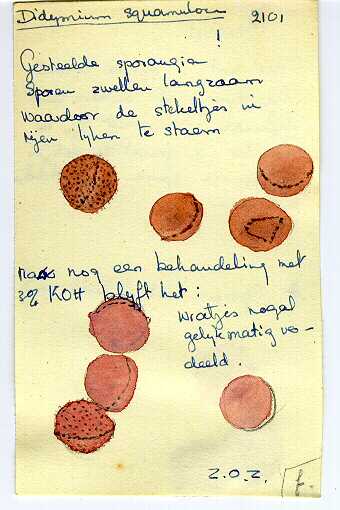 Didymium squamulosum 2101
!
Gesteelde sporangien
Sporen zwellen langzaam
waardoor de stekeltjes in
rijen lijken te staan
nog een behandeling met
3% KOH blijft het:
wratjes nogal
gelijkmatig ver-
deeld.
Z.O.Z.